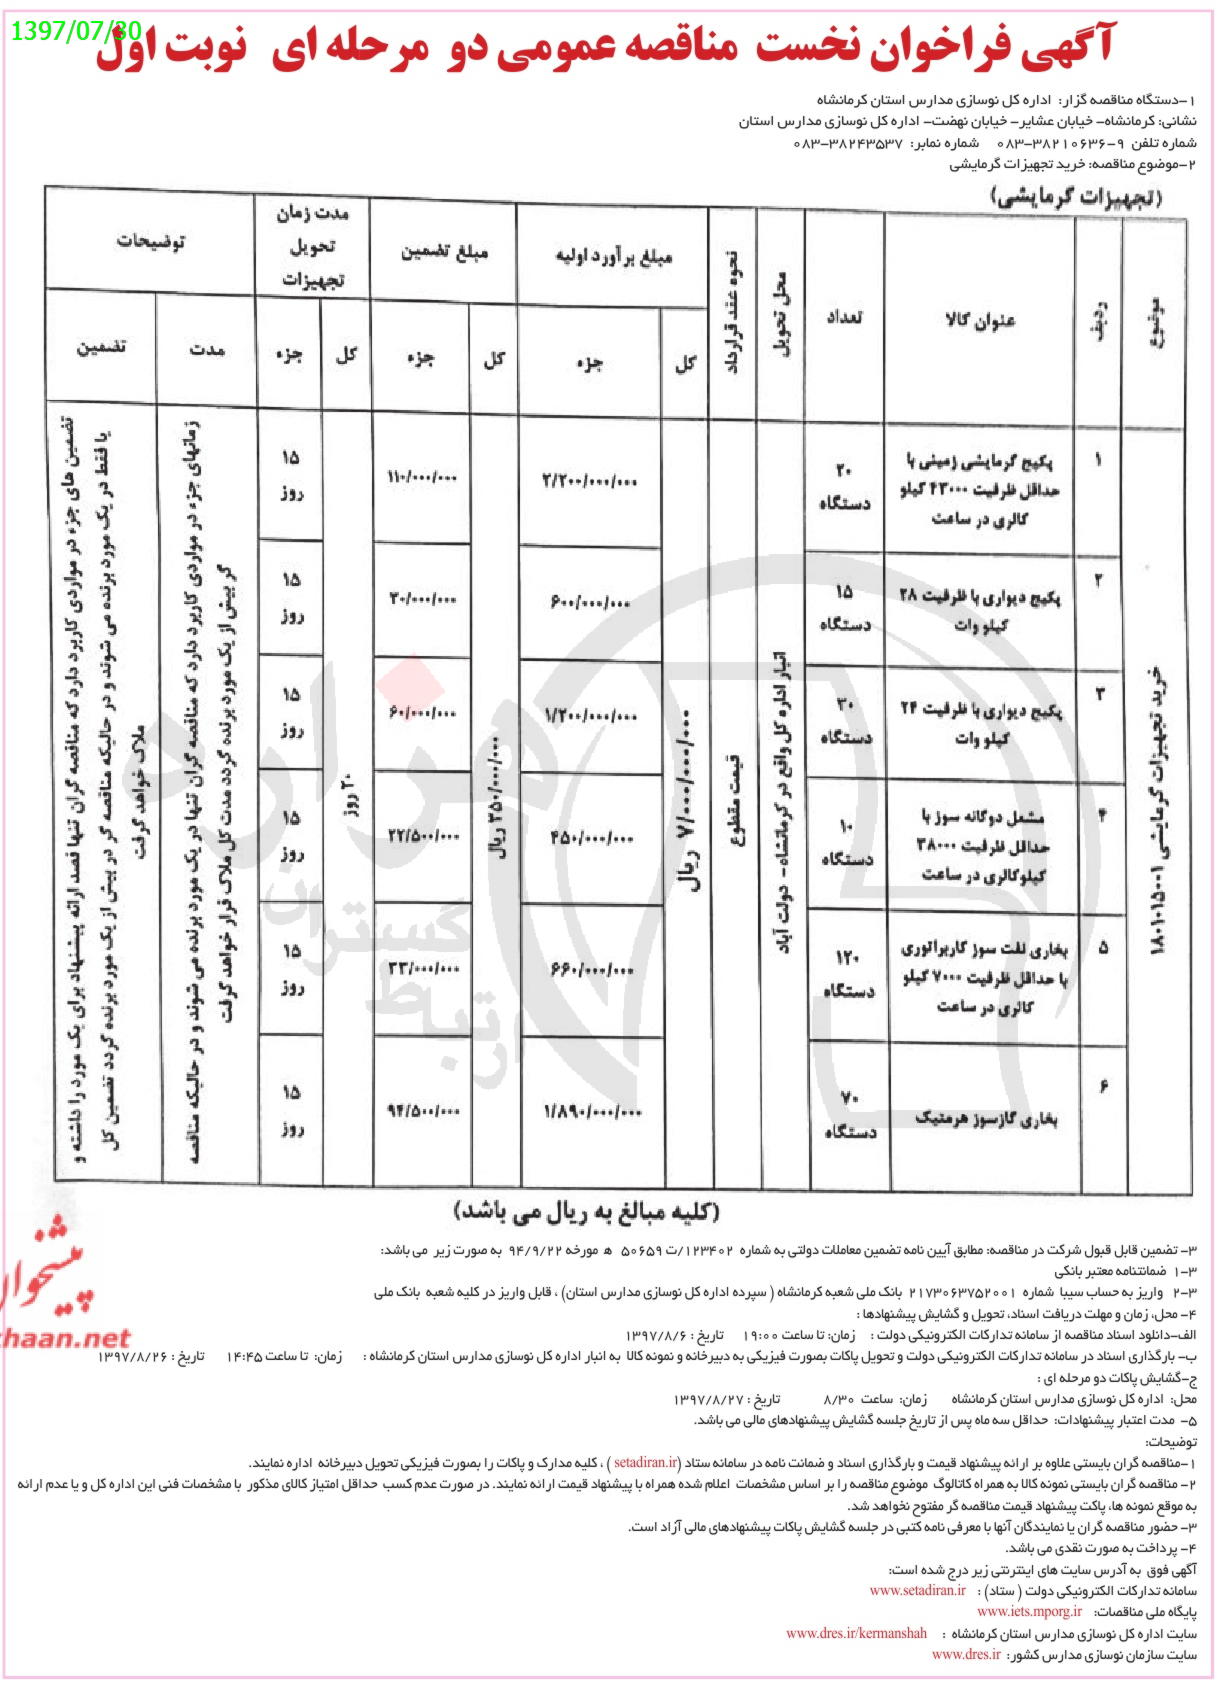 1397/07/30
آگهی فراخوان نخست مناقصه عمومی دو مرحله ای نوبت اول
۱-دستگاه مناقصه گزار: اداره کل نوسازی مدارس استان کرمانشاه
نشانی: کرمانشاه- خیابان عشایر- خیابان نهضت- اداره کل نوسازی مدارس استان
شماره تلفن ۹-۳۸۲۱۰۶۳۶-۰۸۳ شماره نمابر: ۳۸۲۴۳۵۳۷-۰۸۳
۲-موضوع مناقصه: خرید تجهیزات گرمایشی
(تجهیزات گرمایشی)
موضوع
ردیف
عنوان کالا
تعداد
محل تحویل
نحوه عقد قرارداد
مبلغ برآورد اولیه
مبلغ تضمین
مدت زمان
تحویل
تجهیزات
توضیحات
کل
جزء
کل
جزء
کل
جزء
مدت
تضمین
خرید تجهیزات گرمایشی ۱۸۰۱۰۱۵۰۰۱
انبار اداره کل واقع در کرمانشاه- دولت آباد
قیمت مقطوع
۷/۰۰۰/۰۰۰/۰۰۰ ریال
۳۵۰/۰۰۰/۰۰۰ ریال
۲۰ روز
زمانهای جزء در مواردی کاربرد دارد که مناقصه گران تنها در یک مورد برنده می شوند و در حالیکه مناقصه
گر بیش از یک مورد برنده گردد مدت کل ملاک قرار خواهد گرفت
تضمین های جزء در مواردی کاربرد دارد که مناقصه گران تنها قصد ارائه پیشنهاد برای یک مورد را داشته و
یا فقط در یک مورد برنده می شوند و در حالیکه مناقصه گر در بیش از یک مورد برنده گردد تضمین کل
ملاک خواهد گرفت
۱
پکیج گرمایشی زمینی با
حداقل ظرفیت ۴۳۰۰۰ کیلو
کالری در ساعت
۲۰
دستگاه
۲/۲۰۰/۰۰۰/۰۰۰
۱۱۰/۰۰۰/۰۰۰
۱۵
روز
۲
پکیج دیواری با ظرفیت ۲۸
کیلو وات
۱۵
دستگاه
۶۰۰/۰۰۰/۰۰۰
۳۰/۰۰۰/۰۰۰
۱۵
روز
۳
پکیج دیواری با ظرفیت ۲۴
کیلو وات
۳۰
دستگاه
۱/۲۰۰/۰۰۰/۰۰۰
۶۰/۰۰۰/۰۰۰
۱۵
روز
۴
مشعل دوگانه سوز با
حداقل ظرفیت ۳۸۰۰۰
کیلوکالری در ساعت
دستگاه
۴۵۰/۰۰۰/۰۰۰
۲۲/۵۰۰/۰۰۰
۱۵
روز
۵
بخاری نفت سوز کاربراتوری
با حداقل ظرفیت ۷۰۰۰ کیلو
کالری در ساعت
۱۲۰
دستگاه
۶۶۰/۰۰۰/۰۰۰
۳۳/۰۰۰/۰۰۰
۱۵
روز
۶
بخاری گازسوز هرمتیک
۷۰
دستگاه
۱/۸۹۰/۰۰۰/۰۰۰
۹۴/۵۰۰/۰۰۰
۱۵
روز
هزاره
گستران
ارتباط
(کلیه مبالغ به ریال می باشد)
۳- تضمین قابل قبول شرکت در مناقصه: مطابق آیین نامه تضمین معاملات دولتی به شماره ۱۲۳۴۰۲/ت ۵۰۶۵۹ ه مورخه ۹۴/۹/۲۲ به صورت زیر می باشد:
۱-۳ ضمانتنامه معتبر بانکی
۲-۳ واریز به حساب سیبا شماره ۲۱۷۳۰۶۳۷۵۲۰۰۱ بانک ملی شعبه کرمانشاه ( سپرده اداره کل نوسازی مدارس استان) ، قابل واریز در کلیه شعبه بانک ملی
۴- محل، زمان و مهلت دریافت اسناد، تحویل و گشایش پیشنهادها :
الف-دانلود اسناد مناقصه از سامانه تدارکات الکترونیکی دولت : زمان: تا ساعت ۱۹:۰۰ تاریخ : ۱۳۹۷/۸/۶
ب- بارگذاری اسناد در سامانه تدارکات الکترونیکی دولت و تحویل پاکات بصورت فیزیکی به دبیرخانه و نمونه کالا به انبار اداره کل نوسازی مدارس استان کرمانشاه : زمان: تا ساعت ۱۴:۴۵ تاریخ : ۱۳۹۷/۸/۲۶
ج-گشایش پاکات دو مرحله ای :
محل: اداره کل نوسازی مدارس استان کرمانشاه زمان: ساعت ۸/۳۰ تاریخ : ۱۳۹۷/۸/۲۷
۵- مدت اعتبار پیشنهادات: حداقل سه ماه پس از تاریخ جلسه گشایش پیشنهادهای مالی می باشد.
توضیحات:
۱-مناقصه گران بایستی علاوه بر ارائه پیشنهاد قیمت و بارگذاری اسناد و ضمانت نامه در سامانه ستاد (setadiran.ir ) ، کلیه مدارک و پاکات را بصورت فیزیکی تحویل دبیرخانه اداره نمایند.
۲- مناقصه گران بایستی نمونه کالا به همراه کاتالوگ موضوع مناقصه را بر اساس مشخصات اعلام شده همراه با پیشنهاد قیمت ارائه نمایند. در صورت عدم کسب حداقل امتیاز کالای مذکور با مشخصات فنی این اداره کل و یا عدم ارائه
به موقع نمونه ها، پاکت پیشنهاد قیمت مناقصه گر مفتوح نخواهد شد.
۳- حضور مناقصه گران یا نمایندگان آنها با معرفی نامه کتبی در جلسه گشایش پاکات پیشنهادهای مالی آزاد است.
۴- پرداخت به صورت نقدی می باشد.
آگهی فوق به آدرس سایت های اینترنتی زیر درج شده است:
سامانه تدارکات الکترونیکی دولت ( ستاد) : www.setadiran.ir
پایگاه ملی مناقصات: www.iets.mporg.ir
سایت اداره کل نوسازی مدارس استان کرمانشاه : www.dres.ir/kermanshah
سایت سازمان نوسازی مدارس کشور: www.dres.ir
پیشخوان
haan.net